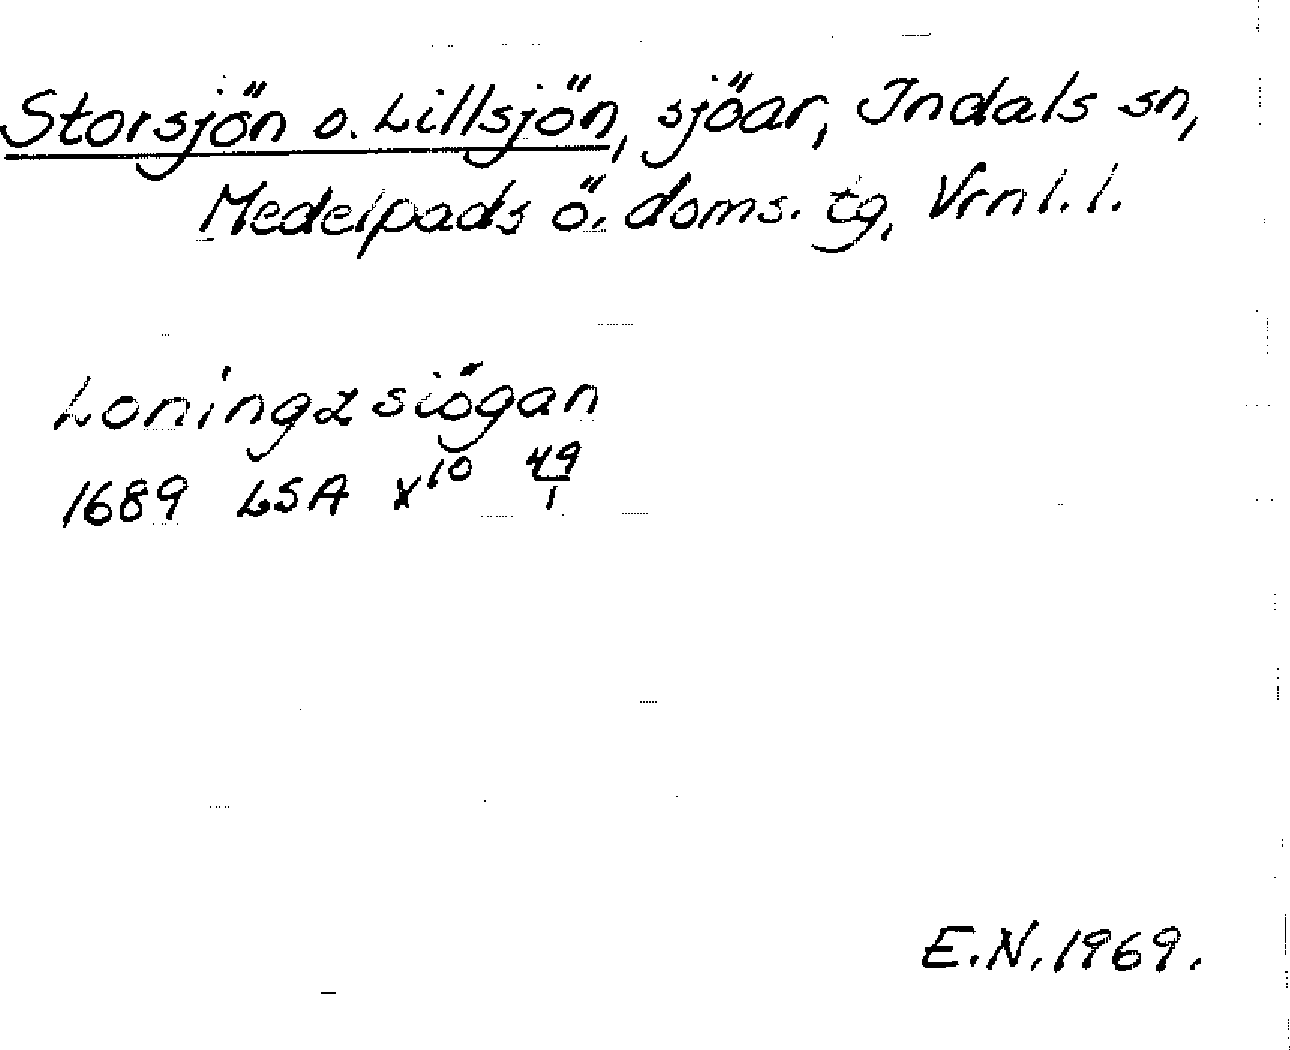 Storsjön o. Lillsjön, sjöar, Indals sn,
Medelpads ö. doms. tg, Vrnl. l.
Loningzsiögan
1689 LSA X¹⁰ 49/1
E.N. 1969.